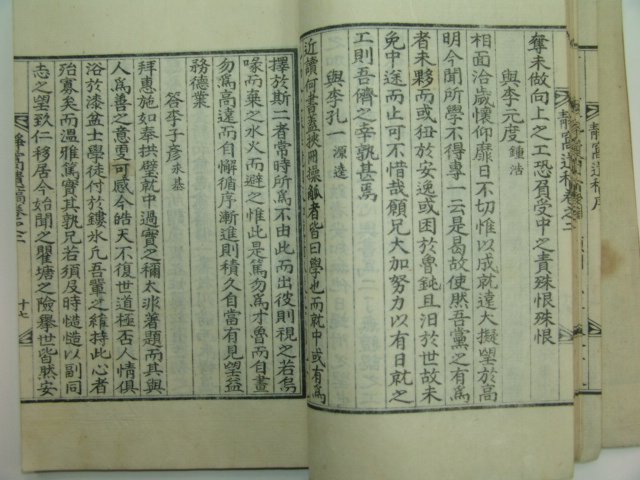 奪未做向上之工恐負受中之責殊恨殊恨
與李元度 鍾浩
相面治歲懷仰靡日不切惟以成就達大擬望於高
明今聞所學不得專一云是曷故使然吾黨之有爲
者未夥而或狃於安逸或困於魯鈍且汨於世故未
免中途而止可不惜哉願兄大加努力以有日就之
工則吾儕之幸孰甚焉
與李孔一 源逵
近讀何書蓋挾冊操觚者皆曰學也而就中或有爲
擇於斯二者當時所爲不由此而出彼則視之若烏
喙而棄之水火而避之惟此是篤勿爲才魯而自畫
勿爲高達而自懈循序漸進則積久自當有見望益
務德業
答李子彥 永基
拜惠施如奉拱璧就中過實之稱太非著題而其與
人爲善之意更可感今皓天不復世道極否人情俱
浴於漆盆士學徒付於鏤氷凡吾輩之維持此心者
殆寡矣而溫雅篤實其孰兄若須及時慥慥以副同
志之望玖仁移居今始聞之瞿塘之險擧世皆然安
靜窩遺稿卷之二
十七
靜窩遺稿卷之二
靜窩遺稿序